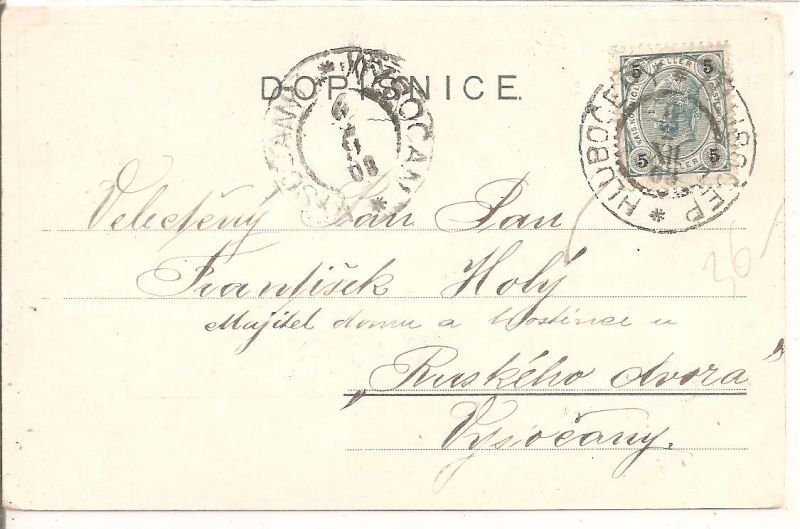 DOPISNICE.
5 HELLER 5
5 5
* VYSOČANY *
08
* HLUBOČEP
XII
Veletěný Pan Pan
František Holý
Majitel domu a Hostince u
„Ruského dvora“
Vysočany.
36